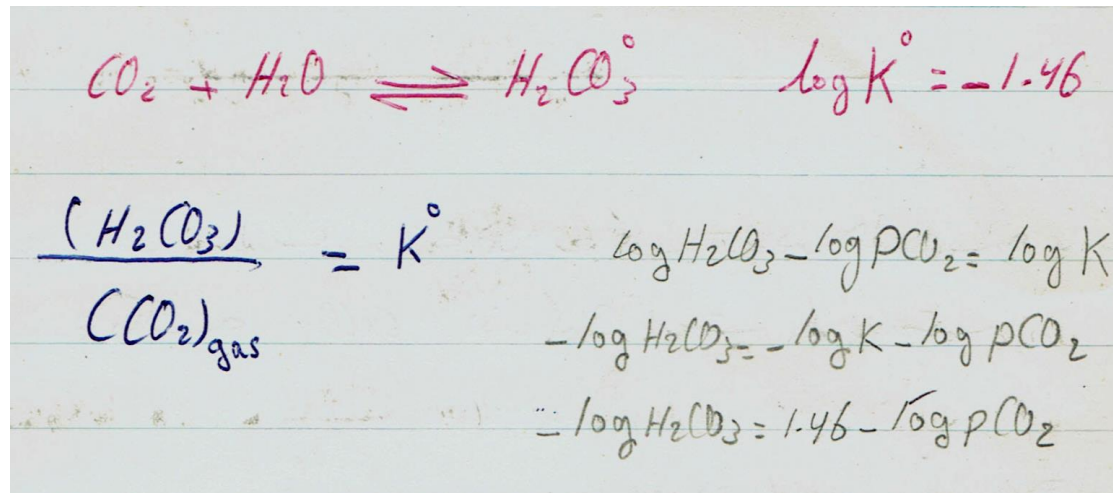 CO₂ + H₂O ⇌ H₂CO₃° log K° = -1.46
(H₂CO₃) / (CO₂)gas = K°
log H₂CO₃ - log PCO₂ = log K
- log H₂CO₃ = - log K - log pCO₂
- log H₂CO₃ = 1.46 - log pCO₂